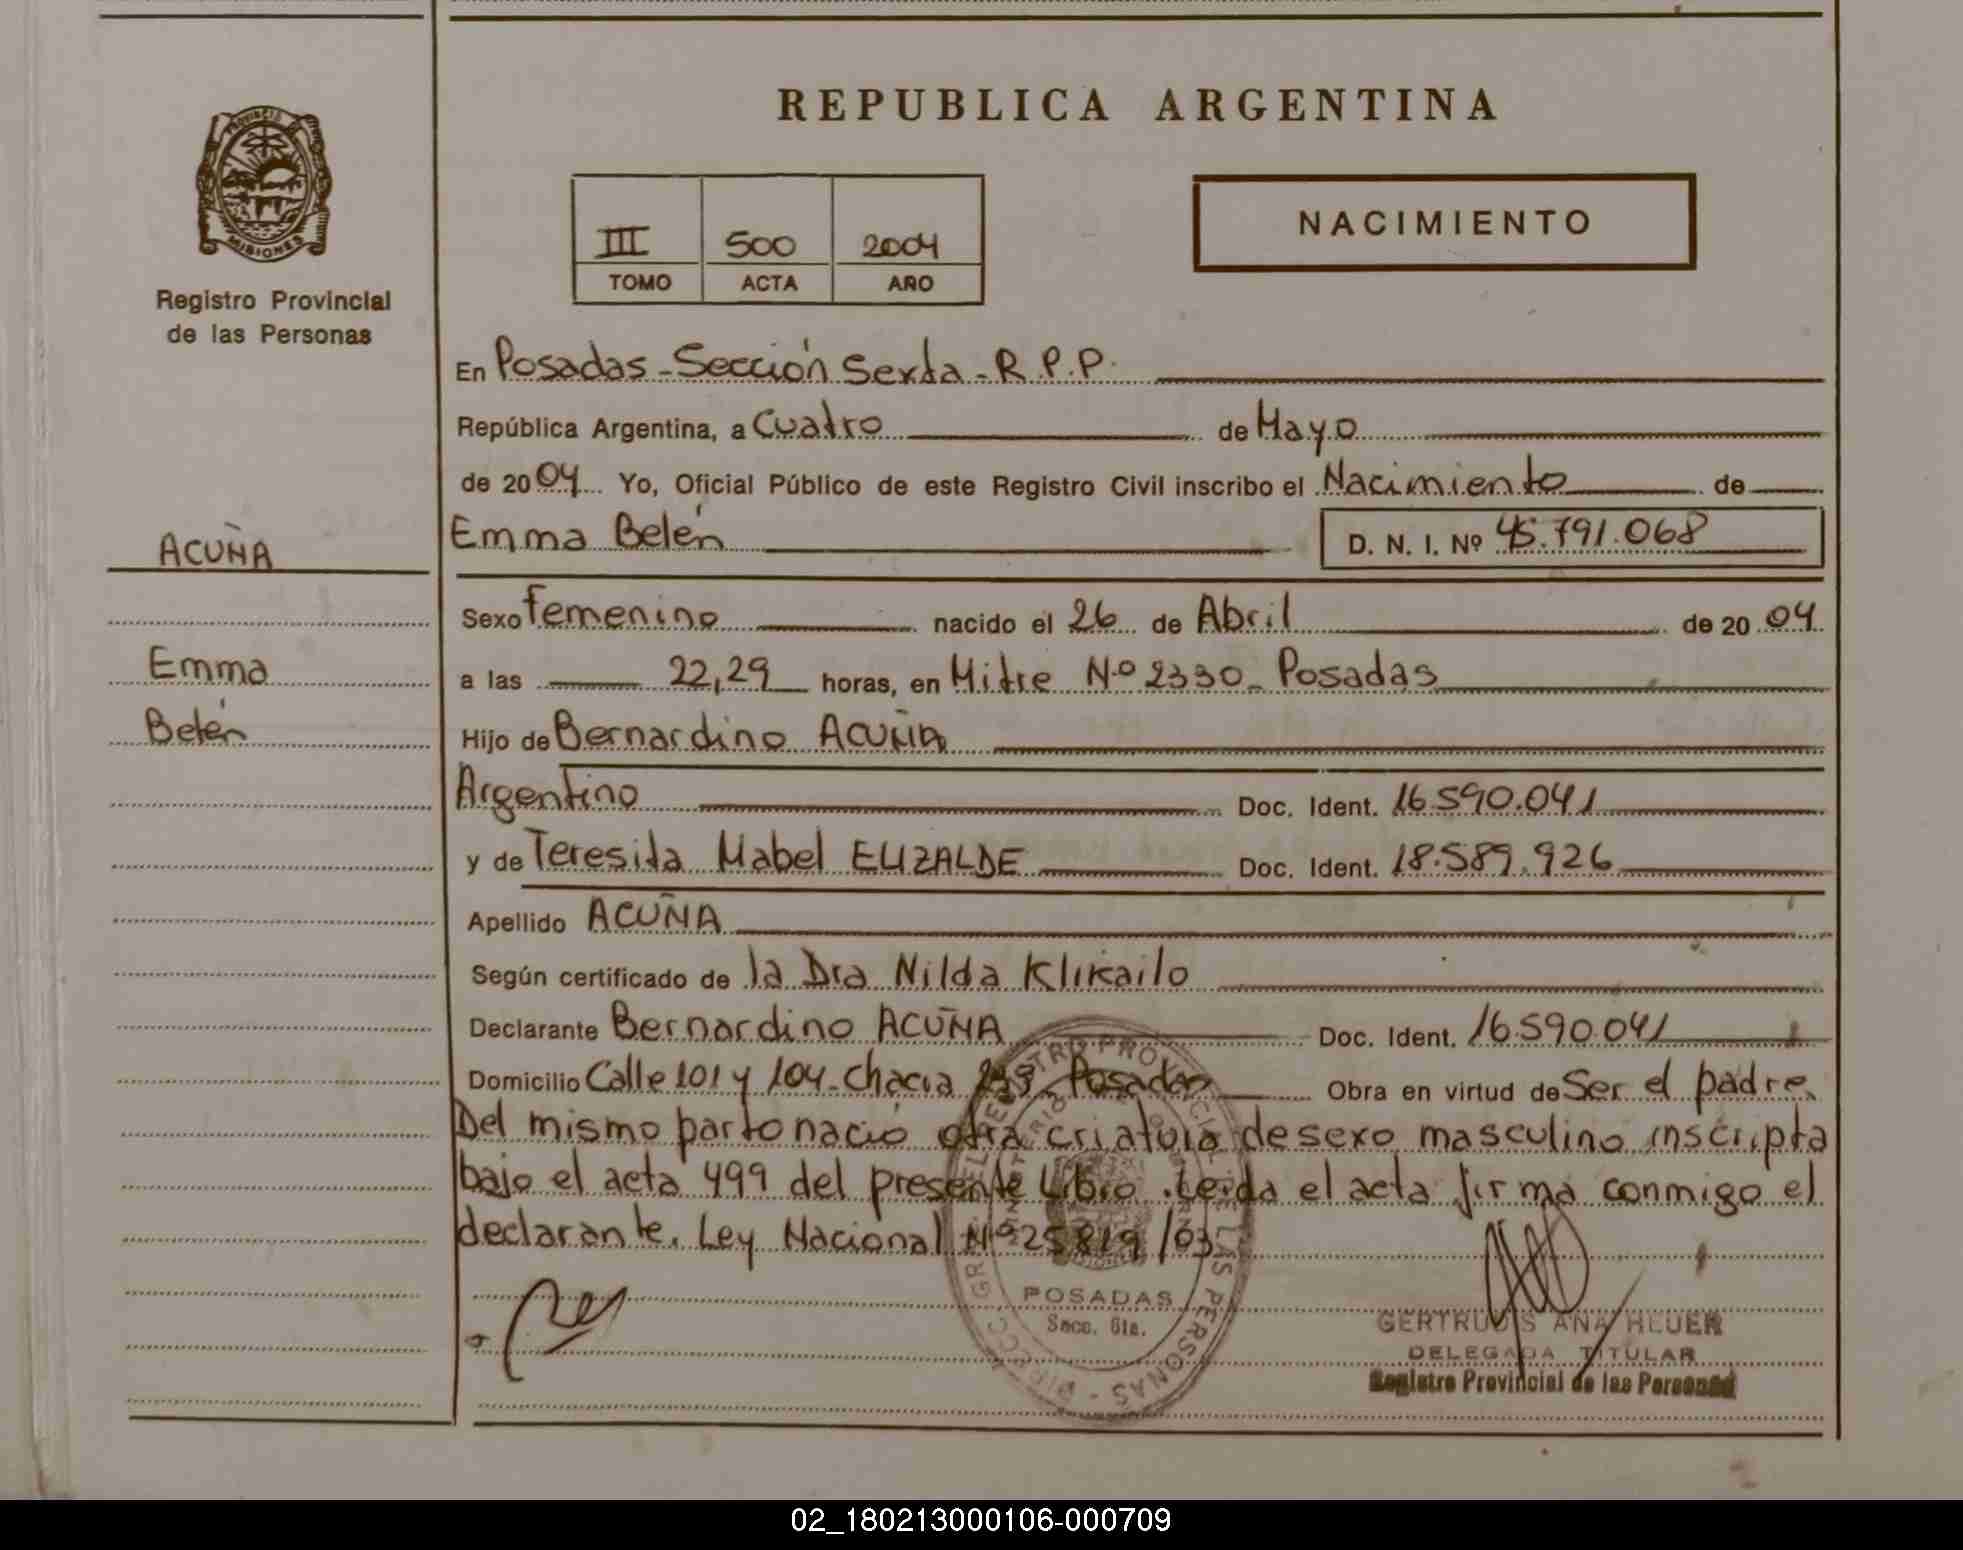 REPUBLICA ARGENTINA
PROVINCIA DE
MISIONES
Registro Provincial
de las Personas
III 500 2004
TOMO ACTA AÑO
NACIMIENTO
En Posadas - Sección Sexta - R.P.P.
República Argentina, a Cuatro de Mayo
de 2004 Yo, Oficial Público de este Registro Civil inscribo el Nacimiento de
Emma Belén D. N. I. Nº 45.791.068
ACUÑA
Sexo femenino nacido el 26 de Abril de 2004
Emma
a las 22,29 horas, en Mitre Nº 2330 - Posadas
Belén
Hijo de Bernardino ACUÑA
Argentino Doc. Ident. 16.590.041
y de Teresita Mabel ELIZALDE Doc. Ident. 18.589.926
Apellido ACUÑA
Según certificado de la Dra Nilda Klikailo
Declarante Bernardino ACUÑA Doc. Ident. 16.590.041
Domicilio Calle 101 y 104 - chacra Posadas Obra en virtud de Ser el padre.
Del mismo parto nació otra criatura de sexo masculino inscripta
bajo el acta 499 del presente Libro. Leida el acta firma conmigo el
declarante. Ley Nacional Nº 25819/03
POSADAS
Secc. 6ta.
GERTRUDIS ANA HEUER
DELEGADA TITULAR
Registro Provincial de las Personas
02_180213000106-000709